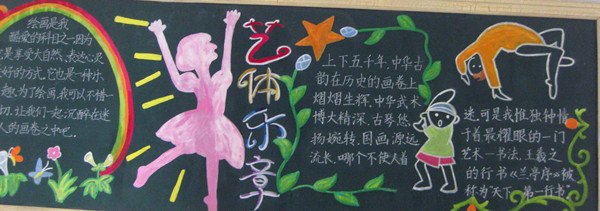 绘画是我
酷爱的科目之一因为
它是享受大自然、表达心灵
最好的方式,它也是一种乐
趣,为了绘画,我可以不惜一
切,让我们一起,沉醉在迷
人的画卷之中吧。
艺体乐章
上下五千年,中华古
韵在历史的画卷上
熠熠生辉,中华武术
博大精深,古琴悠
扬婉转,国画源远
流长,哪个不使人着
迷,可是我惟独钟情
于着最耀眼的一门
艺术—书法,王羲之
的行书《兰亭序》被
称为"天下第一行书"